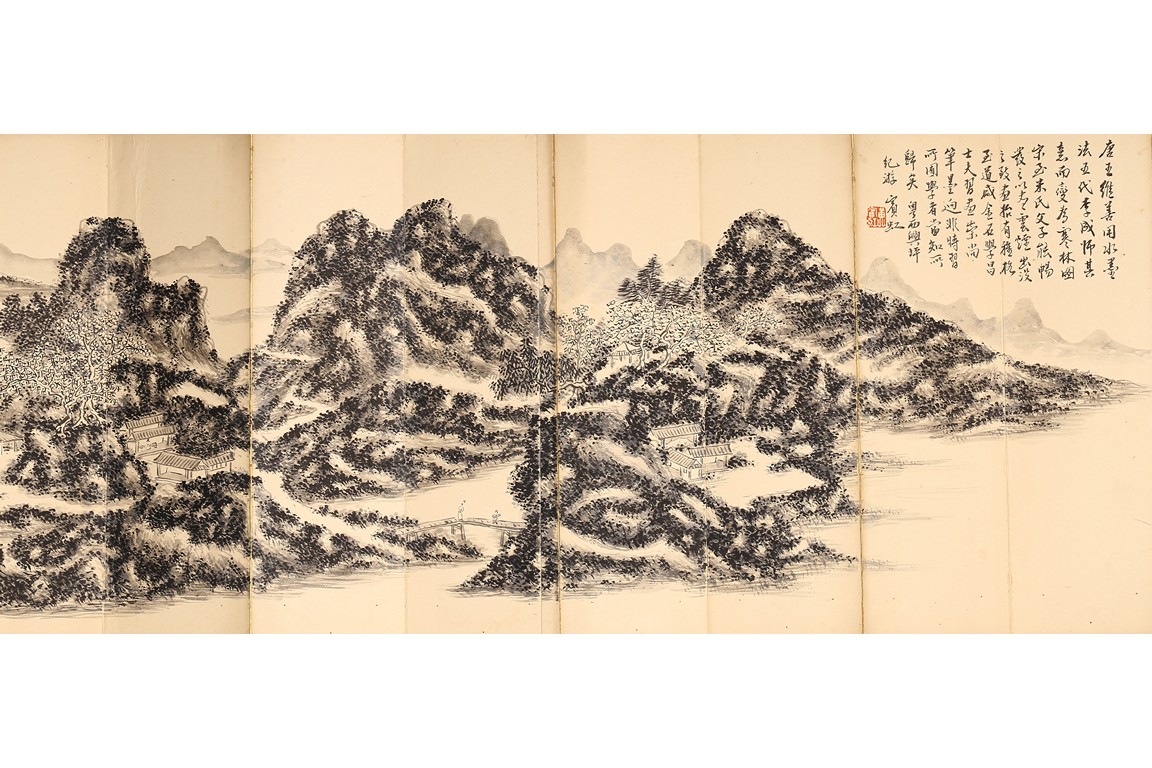 唐王維善用水墨
法五代李成師其
意而變為寒林圖
宋至米氏父子能暢
發之以其雲煙出沒
之致畫格有極格
至道咸金石學昌
士夫習畫崇尚
筆墨迥非時習
所囿學者當知所
歸矣 粵西興坪
紀游 賓虹